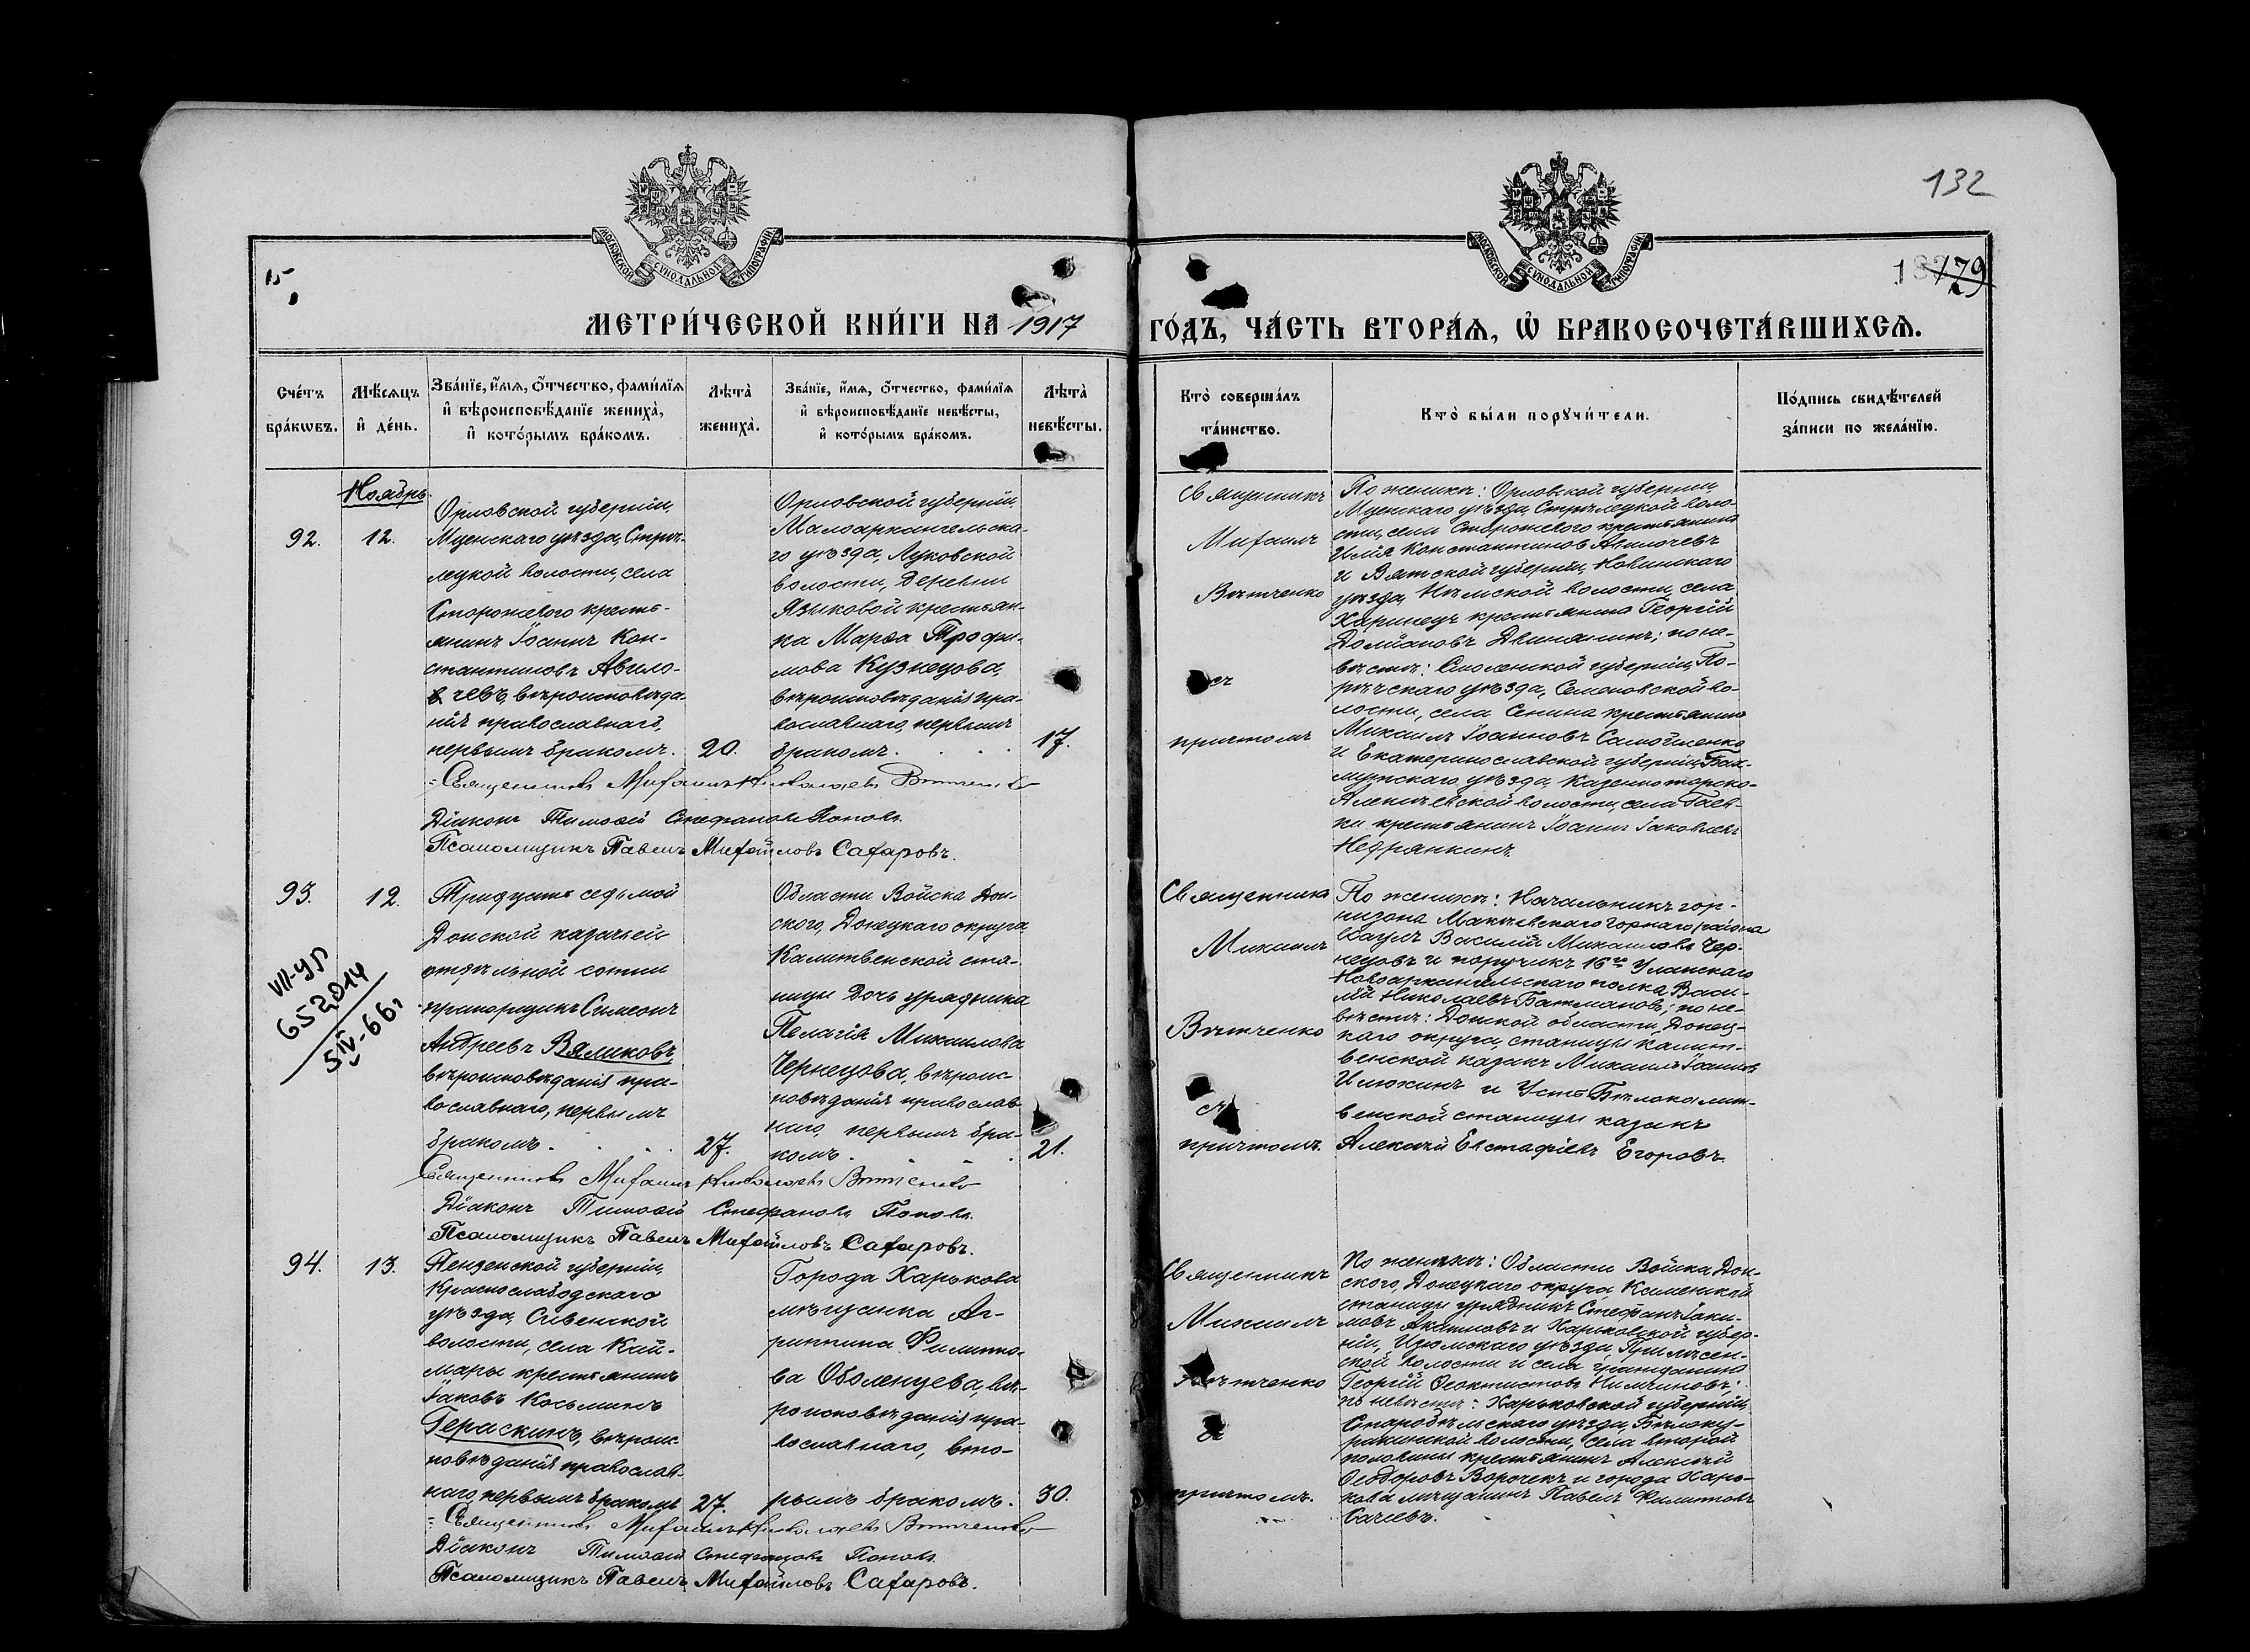 132
МОСКОВСКОЙ СѴНОДАЛЬНОЙ ТИПОГРАФІИ
МОСКОВСКОЙ СѴНОДАЛЬНОЙ ТИПОГРАФІИ
15
129
МЕТРИ́ЧЕСКОЙ КНИ́ГИ НА 1917 ГО́ДЪ, ЧА́СТЬ ВТОРА́Я, Ѡ҆ БРАКОСОЧЕТА́ВШИХСЯ.
Сче́тъ
бра́кѡвъ.
Мѣ́сяцъ
и҆ де́нь.
Зва́нїе, и҆́мя, ѻ҆́тчество, фами́лїя
и҆ вѣроисповѣ́данїе жениха̀,
и҆ кото́рымъ бра́комъ.
Лѣ́та̀
жениха̀.
Зва́нїе, и҆́мя, ѻ҆́тчество, фами́лїя
и҆ вѣроисповѣ́данїе невѣ́сты,
и҆ кото́рымъ бра́комъ.
Лѣ́та̀
невѣ́сты.
Кто̀ соверша́лъ
та́инство.
Кто̀ бы́ли порꙋчи́тели.
По́дпись свидѣ́телей
за́писи по жела́нїю.
Ноябрь.
92.
12.
Орловской губерніи,
Мценскаго уѣзда, Стрѣ-
лецкой волости, села
Сторожевого кресть-
янинъ Іоаннъ Кон-
стантиновъ Авило-
чевъ, вѣроисповѣда
нія православнаго,
первымъ бракомъ.
20.
Орловской губерніи,
Малоархангельска-
го уѣзда, Луковской
волости, деревни
Языковой крестьян-
ка Марѳа Трофи-
мова Кузнецова,
вѣроисповѣданія пра-
вославнаго, первымъ
бракомъ.
17.
Священникъ
Михаилъ
Вѣтченко
съ
причтомъ
По женихѣ: Орловской губерніи,
Мценскаго уѣзда, Стрѣлецкой воло-
сти, села Сторожевого крестьянинъ
Илія Константиновъ Авилочевъ
и Вятской губерніи,
уѣзда, волости, села
крестьянинъ Георгій
Двинянинъ; по не-
вѣстѣ: Смоленской губерніи, По-
рѣчскаго уѣзда, Семеновской во-
лости, села Сенина крестьянинъ
Михаилъ Іоанновъ Самойленко
и Екатеринославской губерніи, Бах-
мутскаго уѣзда, Казенноторско-
Алексѣевской волости, села
крестьянинъ Іоаннъ Іаковлевъ
Священникъ Михаилъ Николаевъ Вѣтченко
Діаконъ Тимоѳей Стефановъ Поповъ.
Псаломщикъ Павелъ Михайловъ Сахаровъ.
93.
12.
VII-УР
652014
5IV-66г
Тридцать седьмой
Донской казачьей
отдѣльной сотни
прапорщикъ Симеонъ
Андреевъ Вяликовъ,
вѣроисповѣданія пра-
вославнаго, первымъ
бракомъ.
27.
Области Войска Дон-
ского, Донецкаго округа
Калитвенской ста-
ницы дочь урядника
Пелагія Михаилова
Чернецова, вѣроис-
повѣданія православ-
наго, первымъ бра-
комъ.
21.
Священникъ
Михаилъ
Вѣтченко
съ
причтомъ.
По женихѣ: Начальникъ гар-
низона Макѣевскаго Горнаго района
есаулъ Василій Михаиловъ Чер-
нецовъ и поручикъ 16го Уланскаго
Новоархангельскаго полка Васи-
лій Николаевъ; по не-
вѣстѣ: Донской области, Донец-
каго округа, станицы Калит-
венской казакъ Михаилъ Іоанновъ
Илюхинъ и Усть Бѣлокалит-
венской станицы казакъ
Алексѣй Евстафіевъ Егоровъ.
Священникъ Михаилъ Николаевъ Вѣтченко
Діаконъ Тимоѳей Стефановъ Поповъ.
Псаломщикъ Павелъ Михайловъ Сахаровъ.
94.
13.
Пензенской губерніи,
Краснослободскаго
уѣзда, Сивенской
волости, села Кай-
мары крестьянинъ
Іаковъ Косьминъ
Гераскинъ, вѣроис
повѣданія православ-
наго, первымъ бракомъ
27.
Города Харькова
мѣщанка Аг-
риппина Филиппо-
ва Оболенцева, вѣ-
роисповѣданія пра-
вославнаго, вто-
рымъ бракомъ.
30.
Священникъ
Михаилъ
Вѣтченко
съ
причтомъ.
По женихѣ: Области Войска Дон-
ского, Донецкаго округа, Каменской
станицы урядникъ Стефанъ Іаки-
мовъ Акимовъ и Харьковской губер-
ніи, Изюмскаго уѣзда,
волости и села гражданинъ
Георгій Ѳеоктистовъ;
по невѣстѣ: Харьковской губерніи,
Старобѣльскаго уѣзда, Бѣлоку-
ракинской волости, села второй
половины крестьянинъ Алексѣй
Ѳеодоровъ и города Харь-
кова мѣщанинъ Павелъ Филипповъ
Священникъ Михаилъ Николаевъ Вѣтченко
Діаконъ Тимоѳей Стефановъ Поповъ.
Псаломщикъ Павелъ Михайловъ Сахаровъ.